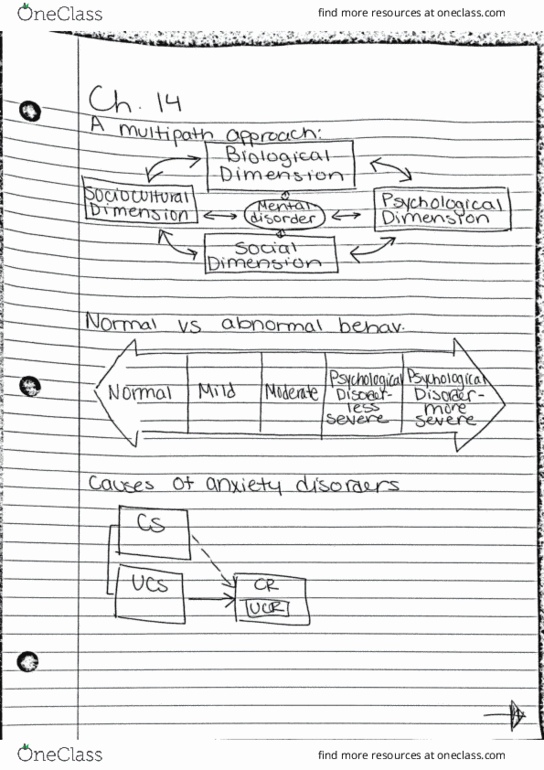 OneClass
find more resources at oneclass.com
Ch. 14
A multipath approach:
Biological
Dimension
Sociocultural
Dimension
Mental
disorder
Psychological
Dimension
Social
Dimension
Normal vs abnormal behav.
Normal
Mild
Moderate
Psychological
Disorder-
less
severe
Psychological
Disorder-
more
severe
Causes of anxiety disorders
CS
UCS
CR
UCR
OneClass
find more resources at oneclass.com